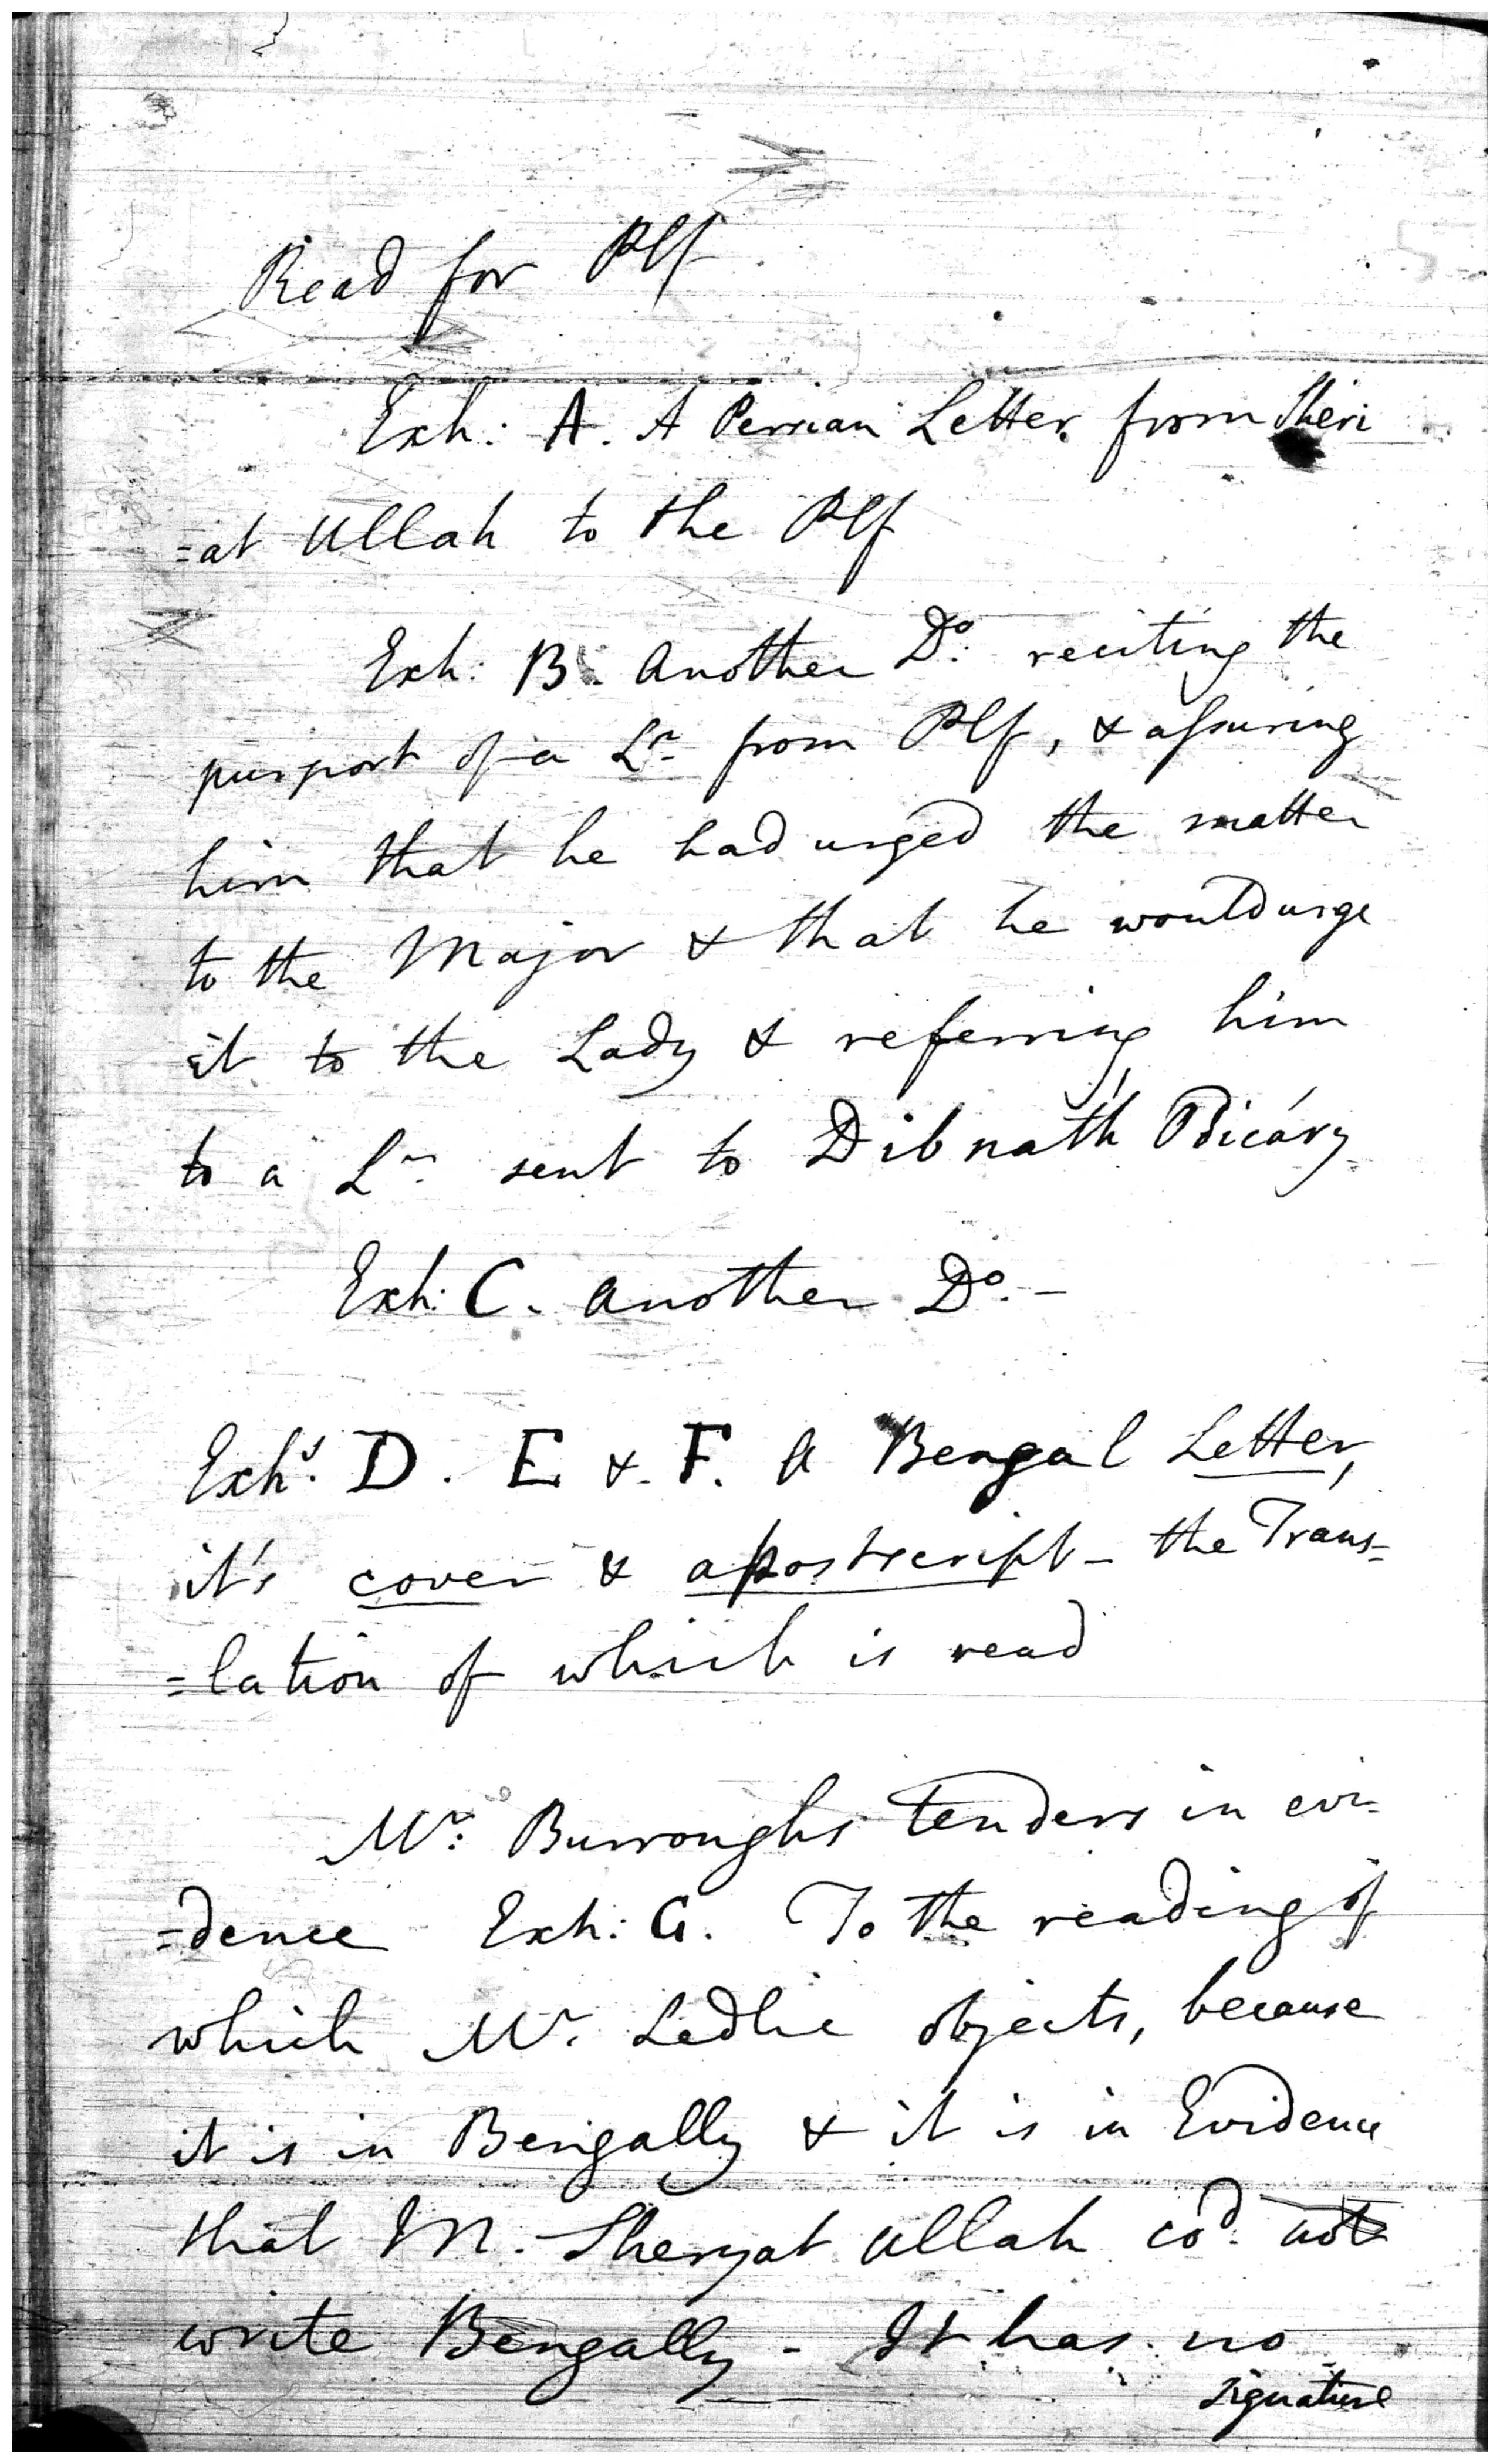 Read for Plf
Exh: A. A Persian Letter from Sheri
=at Ullah to the Plf
Exh: B. Another Do. reciting the
purport of a Lr. from Plf, & assuring
him that he had urged the matter
to the Major & that he would urge
it to the Lady & referring him
to a Lr. sent to Dibnath
Exh: C. Another Do. -
Exhs. D. E & F. A Bengal Letter,
it's cover & a postscript - the Trans=
=lation of which is read
Mr. Burroughs tenders in evi=
=dence Exh: G. To the reading of
which Mr. Ledlie objects, because
it is in Bengally & it is in Evidence
that M. Sheryat Ullah cod. not
write Bengally - It has no
signature